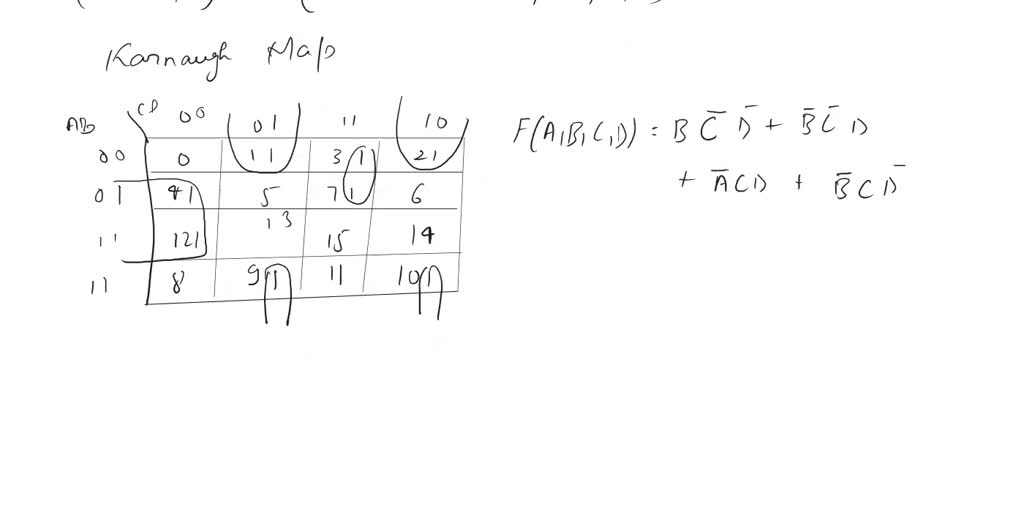 Karnaugh Map
AB CD 00 01 11 10
00 0 11 3 1 21
01 41 5 7 1 6
11 121 13 15 14
11 8 9 1 11 10 1
F(A,B,C,D) = B C̅ D̅ + B̅ C̅ D
+ A̅ C D + B̅ C D̅